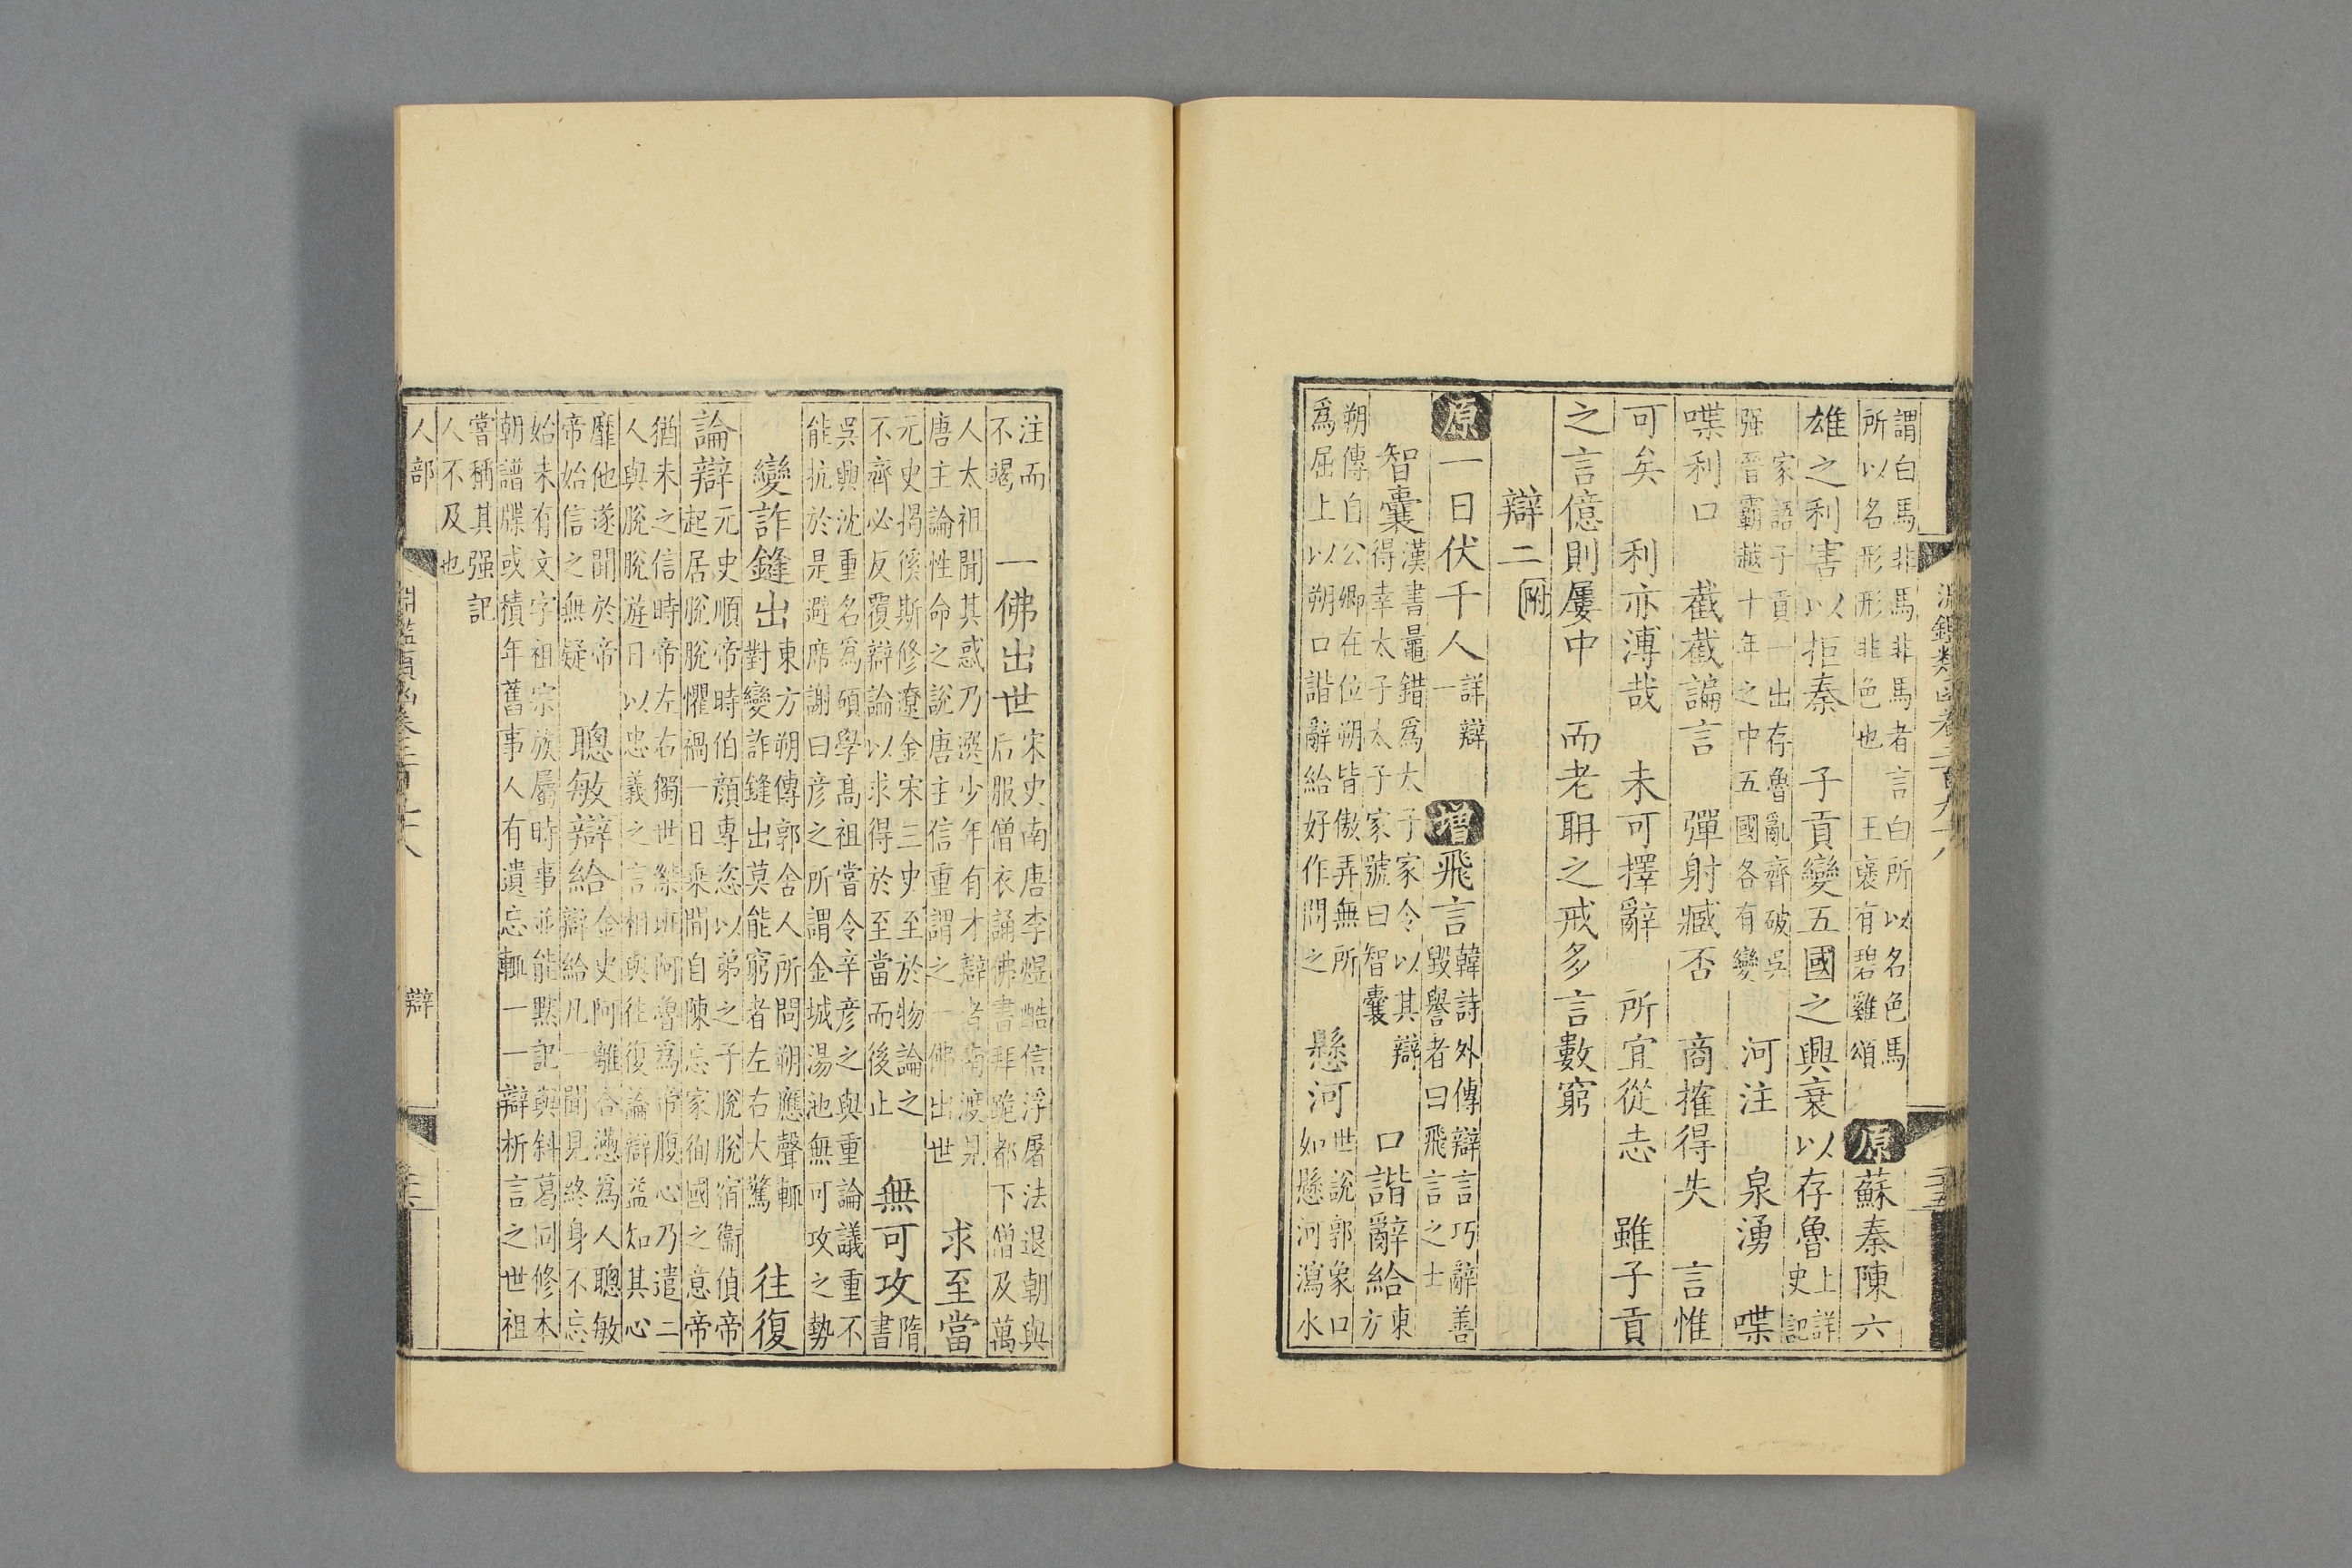 謂白馬非馬非馬者言白所以名色馬
所以名形形非色也　王褒有碧雞頌　原　蘇秦陳六
雄之利害以拒秦　子貢變五國之興衰以存魯上詳
史記
家語子貢一出存魯亂齊破吳
强晉霸越十年之中五國各有變　河注　泉湧　喋
喋利口　截截諞言　彈射臧否　商搉得失　言惟
可矣　利亦溥哉　未可擇辭　所宜從志　雖子貢
之言億則屢中　而老聃之戒多言數窮
辯二附
原一日伏千人詳辯
一　增飛言韓詩外傳辯言巧辭善
毀譽者曰飛言之士
智囊漢書鼂錯爲太子家令以其辯
得幸太子太子家號曰智囊　口諧辭給東
方
朔傳自公卿在位朔皆傲弄無所
爲屈上以朔口諧辭給好作問之　懸河世說郭象口
如懸河瀉水
注而
不竭　一佛出世宋史南唐李煜酷信浮屠法退朝與
后服僧衣誦佛書拜跪都下僧及萬
人太祖聞其惑乃選少年有才辯者南渡見
唐主論性命之說唐主信重謂之一佛出世　求至當
元史揭傒斯修遼金宋三史至於物論之
不齊必反覆辯論以求得於至當而後止　無可攻隋
書
吳興沈重名爲碩學高祖嘗令辛彥之與重論議重不
能抗於是避席謝曰彥之所謂金城湯池無可攻之勢
變詐鋒出東方朔傳郭舍人所問朔應聲輒
對變詐鋒出莫能窮者左右大驚　往復
論辯元史順帝時伯顏專恣以弟之子脫脫宿衞偵帝
起居脫脫懼禍一日乘閒自陳忘家徇國之意帝
猶未之信時帝左右獨世傑班阿魯爲帝腹心乃遣二
人與脫脫遊日以忠義之言相與往復論辯益知其心
靡他遂聞於帝
帝始信之無疑　聰敏辯給金史阿離合懣爲人聰敏
辯給凡一聞見終身不忘
始未有文字祖宗族屬時事並能默記與斜葛同修本
朝譜牒或積年舊事人有遺忘輒一一辯析言之世祖
嘗稱其强記
人不及也
人部　辯